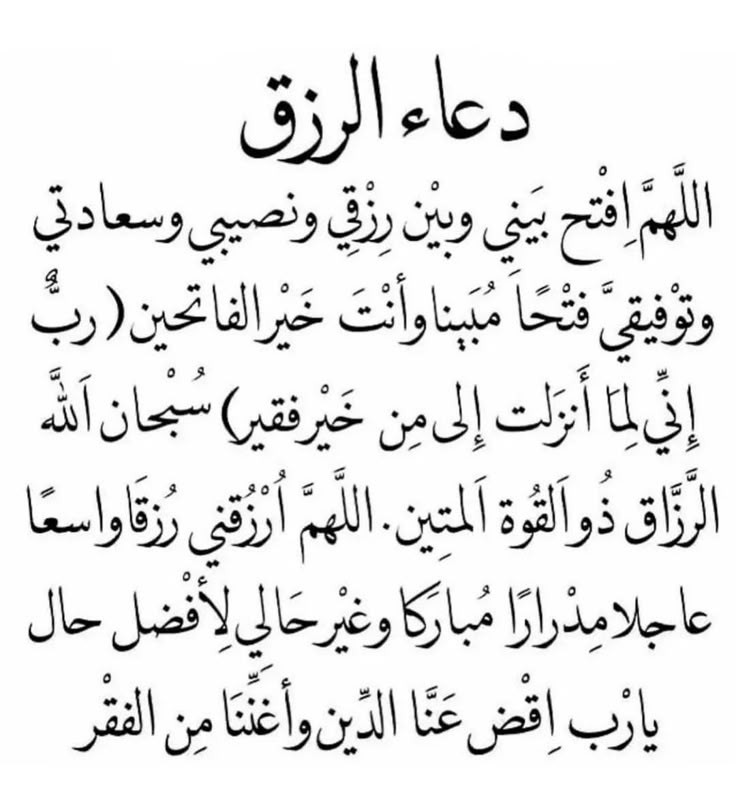 دعاء الرزق
اللَّهمَّ اِفْتح بيَني وبيْن رِزْقِي ونصيبي وسعادتي
وتوْفيقيَّ فتْحًاَ مُبَيِنا وأنْتَ خَيْر الفاتحين ( ربٌّ
إنِّي لِمَا أَنزَلت إلى مِن خَيْر فقير) سُبْحان اَللَّه
الرَّزَّاق ذُو اَلقُوة اَلمتِين. اللَّهمَّ اُرْزُقني رُزقَا واسعًا
عاجلا مِدْرارًا مُبارَكا وغيْر حَالي لِأفْضل حال
يارْب اِقْض عَنَّا الدِّين وأغَنِّنَا مِن الفقْر